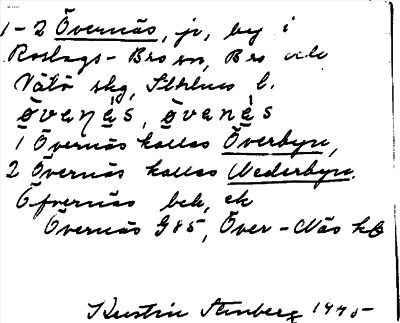 1-2 Övernäs, jo, by i
Roslags-Bro sn, Bro och
Vätö skg, Sthlms l.
övenä̀s, övenäs
1 Övernäs kallas Överbyn,
2 Övernäs kallas Nederbyn.
Öfvernäs bek, ek
Övernäs G85, Över-Näs kb
Kerstin Stenberg 1945